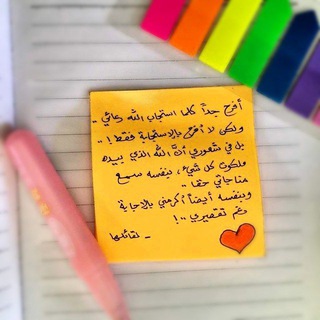 أفرح جداً كلما استجاب الله دعائي ..
ولكن لا أفرح بالإستجابة فقط ! ..
بل في شعوري أنَّ الله الذي بيده
ملكوت كل شيء ، بنفسه سمع
مناجاتي حقا ..
وبنفسه أيضاً أكرمني بالاجابة
رغم تقصيري ..!
- لقائلها